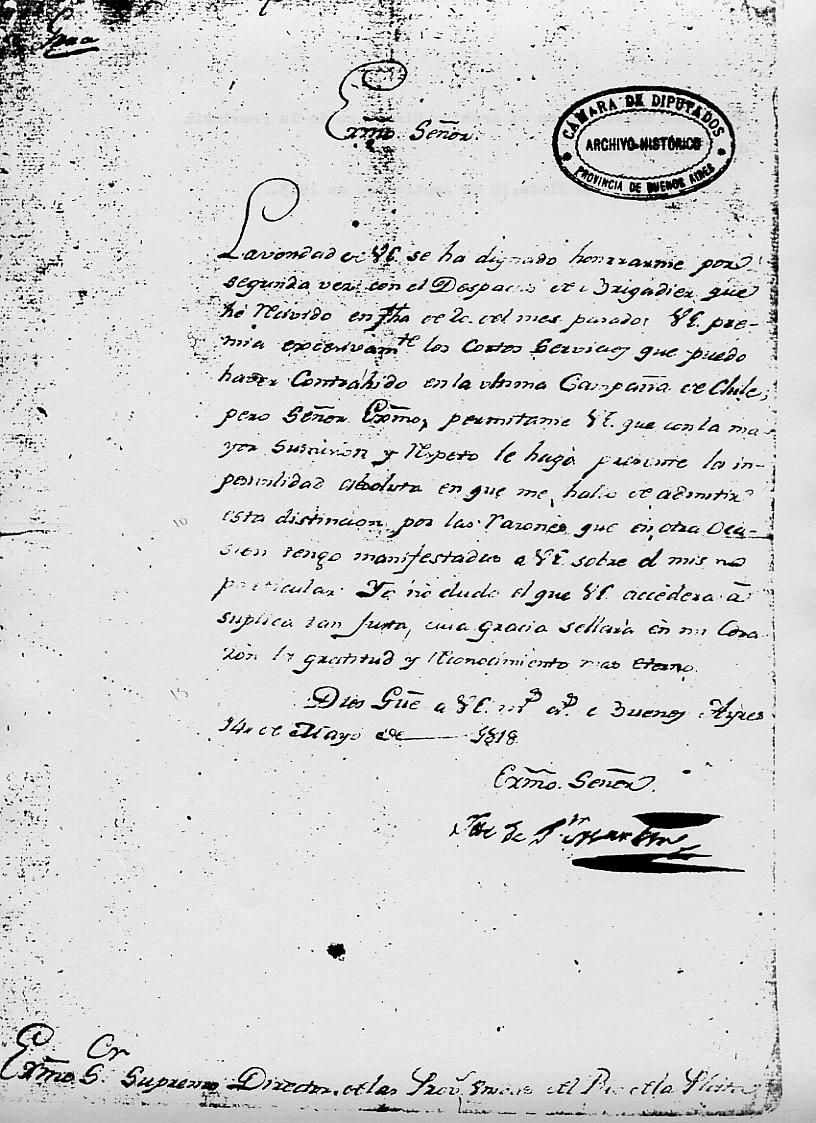 Exmo. Señor.
CÁMARA DE DIPUTADOS
ARCHIVO HISTÓRICO
PROVINCIA DE BUENOS AIRES
La vondad de VE. se ha dignado honrrarme por
segunda vez con el Despacho de Brigadier que
hé recivido en fha de 20 del mes pasado: VE. pre-
mia excesivamte los cortos servicios que puedo
haver contrahido en la ultima Campaña de Chile;
pero Señor Exmo, permitame VE. que con la ma-
yor sumision y respeto le haga presente la in-
posivilidad absoluta en que me hallo de admitir
esta distincion, por las razones que en otra oca-
sion tengo manifestadas a VE. sobre el mismo
particular. Yo no dudo el que VE. accederá á
suplica tan justa, cuia gracia sellará en mi cora-
zon la gratitud y reconocimiento mas eterno.
Dios Gũe a VE. ms as. Buenos Ayres
14 de Mayo de 1818
Exmo. Señor.
Jse de Sn Martin
Exmo. S. Supremo Director de las Prov. Unidas del Rio de la Plata